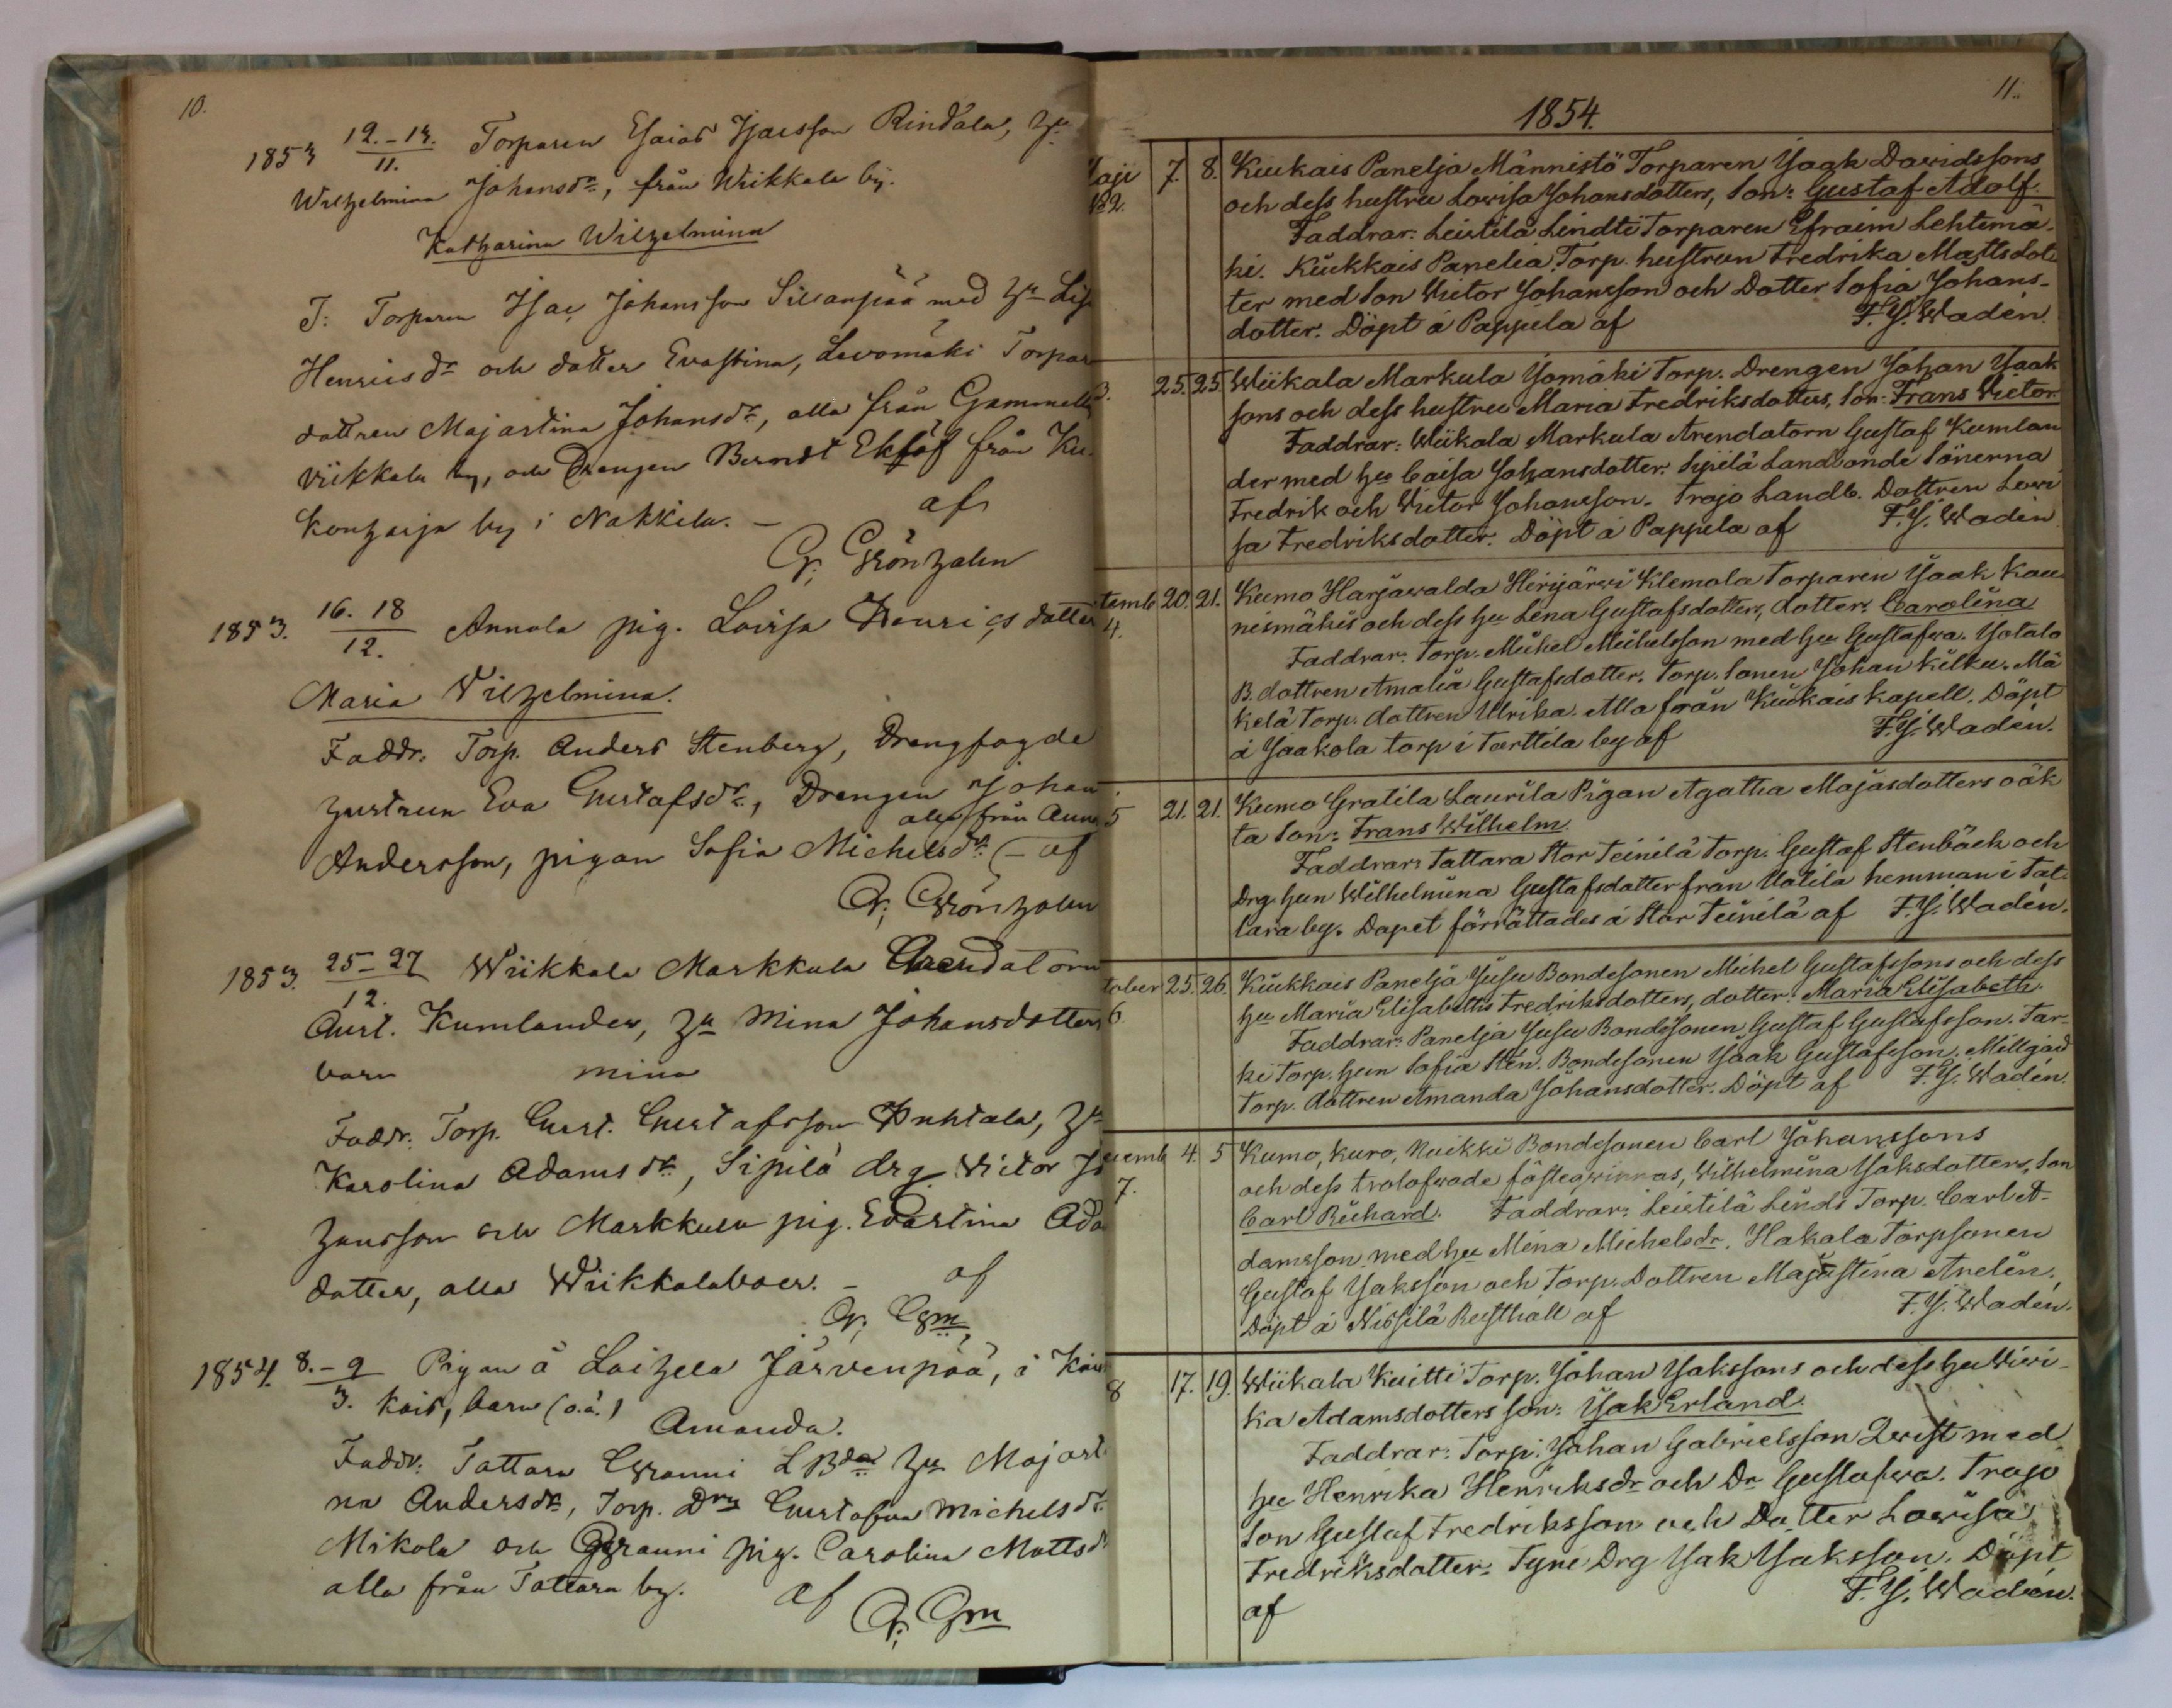 10.
1853 12.-13. Torparen Esaias Isacsson Rindala, hu
11.
Wilhelmina Johansdr, från Wiikkala by.
Katharina Wilhelmina
F: Torparen Isac Johansson Sillanpää med hu Lisa
Henricsdr och dotter Evastina, Levomäki Torpar
dottren Majastina Johansdr, alla från Gammelby
viikkala by, och Drengen Berndt Eklöf från Ku-
konharja by i Nakkila. - af
G. Grönholm
1853. 16. 18 Annola pig. Lovisa Henrics dotter
12.
Maria Vilhelmina.
Faddr. Torp. Anders Stenberg, Drengfogde
hustrun Eva Gustafsdr, Drengen Johan
alla från Anno
Andersson, pigan Sofia Michelsdr. - af
G. Grönholm
1853. 25-27 Wiikkala Markkula Arendatorn
12.
Gust. Kumlander, hu Mina Johansdotters
barn Mina
Faddr. Torp. Gust. Gustafsson Huhtala, hu
Karolina Adamsdr, Sipilä drg Victor Jo
hansson och Markkula pig. Evastina Ada
dotter, alla Wiikkalaboer. - af
G. Gm
1854. 8.-9 Pigan å Laihela Järvenpää, i Kiu
3. kais, barn (o.ä.)
Amanda.
Faddr. Tattara Granni LBda hu Majast
na Andersdr, Torp. Drg Gustafva Michelsdr
Mikola och Granni pig. Carolina Mattsdr
alla från Tattara by. af
G. Gm
11.
1854.
Maji 7. 8. Kiukais Panelja Männistö Torparen Jaak Davidssons
№2. och dess hustru Lovisa Johansdotters, Son: Gustaf Adolf.
Faddrar: Leistilä Lindti Torparen Efraim Lehtimä-
ki. Kiukkais Panelia Torp. hustrun Fredrika Mattsdot-
ter med Son Victor Johansson och Dotter Sofia Johans-
dotter. Döpt å Pappila af F. J. Wadén.
3. 25. 25. Wiikala Markula Jomäki Torp. Drengen Johan Jaak
sons och dess hustru Maria Fredriksdotters, Son: Frans Victor.
Faddrar: Wiikala Markula Arendatorn Gustaf Kumlan
der med hu Caisa Johansdotter. Sipilä Landbonde Sönerna
Fredrik och Victor Johansson. Trojo Landb. Dottren Lovi
sa Fredriksdotter. Döpt å Pappila af F. J. Wadén
temb 20. 21. Kumo Harjawalda Hirvijärvi Klemola Torparen Jaak Kau
4. nismäkis och dess hu Lena Gustafsdotters, dotter: Carolina
Faddrar: Torp. Michel Michelsson med hu Gustafva. Jotalo
B. dottren Amalia Gustafsdotter. Torp. Sonen Johan Kilku. Mä
kelä Torp. dottren Ulrika. Alla från Kiukais kapell. Döpt
å Jaakola torp i Torttila by af F. J. Wadén.
5 21. 21. Kumo Gratila Laurila Pigan Agatha Majasdotters oäk
ta Son: Frans Wilhelm.
Faddrar: Tattara Stor Teinilä Torp. Gustaf Stenbäck och
Drg. hun Wilhelmina Gustafsdotter från Uotila hemman i Tat-
tara by. Dopet förrättades å Stor Teinilä af F. J. Wadén.
tober 25. 26. Kiukkais Panelja Jusu Bondesonen Michel Gustafssons och dess
6 hu Maria Elisabeths Fredriksdotters, dotter: Maria Elisabeth.
Faddrar: Panelja Jusu Bondesonen Gustaf Gustafsson. Tar-
ki Torp. hun Sofia Stén. Bondesonen Jaak Gustafsson. Millgård
Torp. dottren Amanda Johansdotter. Döpt af F. J. Wadén.
cemb 4. 5 Kumo, Kuro, Nuikki Bondesonen Carl Johanssons
7. och dess trolofwade fästeqvinnas, Wilhelmina Jaksdotters, Son
Carl Richard. Faddrar: Leistilä Linds Torp. Carl A-
damsson med hu Mina Michelsdr. Hakala Torpsonen
Gustaf Jaksson och Torp. Dottren Majastina Anelin.
Döpt å Nissilä Rusthall af F. J. Wadén.
8 17. 19. Wiikala Kuitti Torp. Johan Jakssons och dess hu Wivi-
ka Adamsdotters son: Jak Erland.
Faddrar: Torp. Johan Gabrielsson Qwist med
hu Henrika Henriksdr och Dr Gustafva. Trojo
Son Gustaf Fredriksson och Dotter Lovisa
Fredriksdotter. Tyni Drg Jak Jaksson. Döpt
af F. J. Wadén.